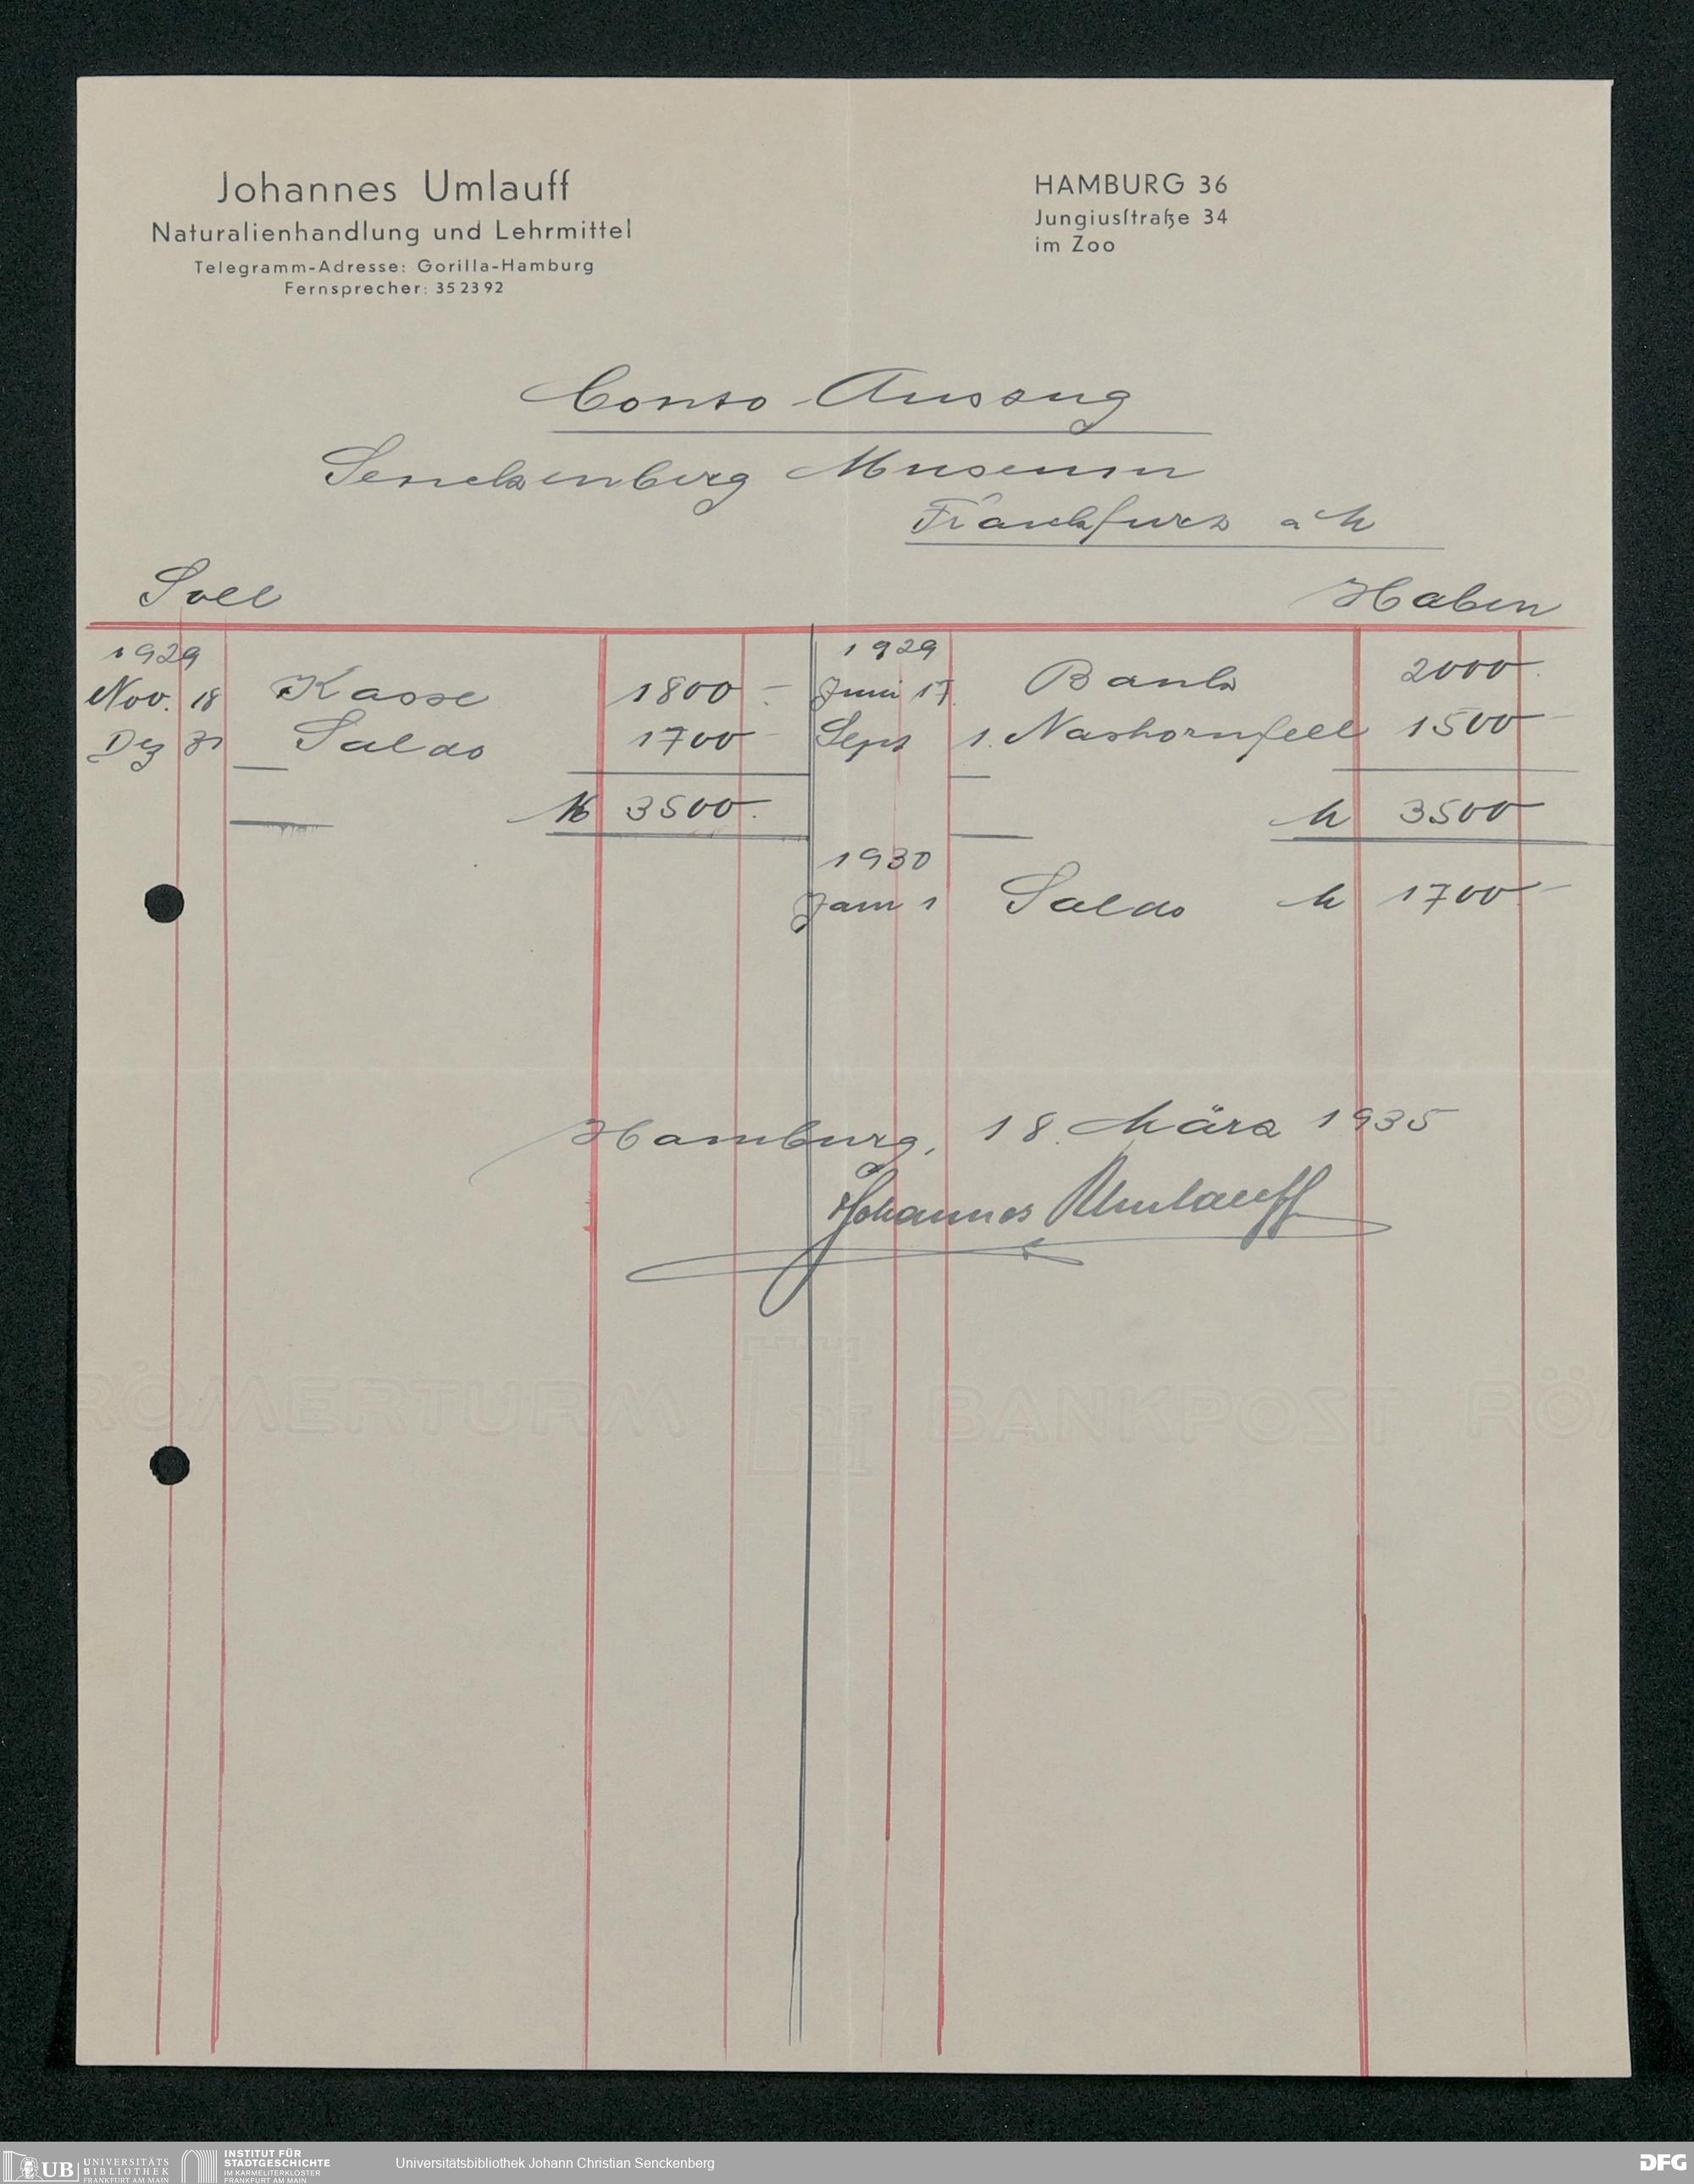 Johannes Umlauff
Naturalienhandlung und Lehrmittel
Telegramm-Adresse: Gorilla-Hamburg
Fernsprecher: 35 23 92
HAMBURG 36
Jungiusſtraße 34
im Zoo
Conto-Auszug
Senckenberg Museum
Frankfurt a M
Soll
Haben
1929
Nov. 18 Kasse 1800 -
Dez 31 Saldo 1700 -
M 3500.
1929
Juni 17. Bank 2000 -
Sept 1. Nashornfell 1500 -
M 3500
1930
Jan 1 Saldo M 1700 -
Hamburg, 18. März 1935
Johannes Umlauff
RÖMERTURM BANKPOST RÖ
UB UNIVERSITÄTS
BIBLIOTHEK
FRANKFURT AM MAIN
INSTITUT FÜR
STADTGESCHICHTE
IM KARMELITERKLOSTER
FRANKFURT AM MAIN
Universitätsbibliothek Johann Christian Senckenberg
DFG